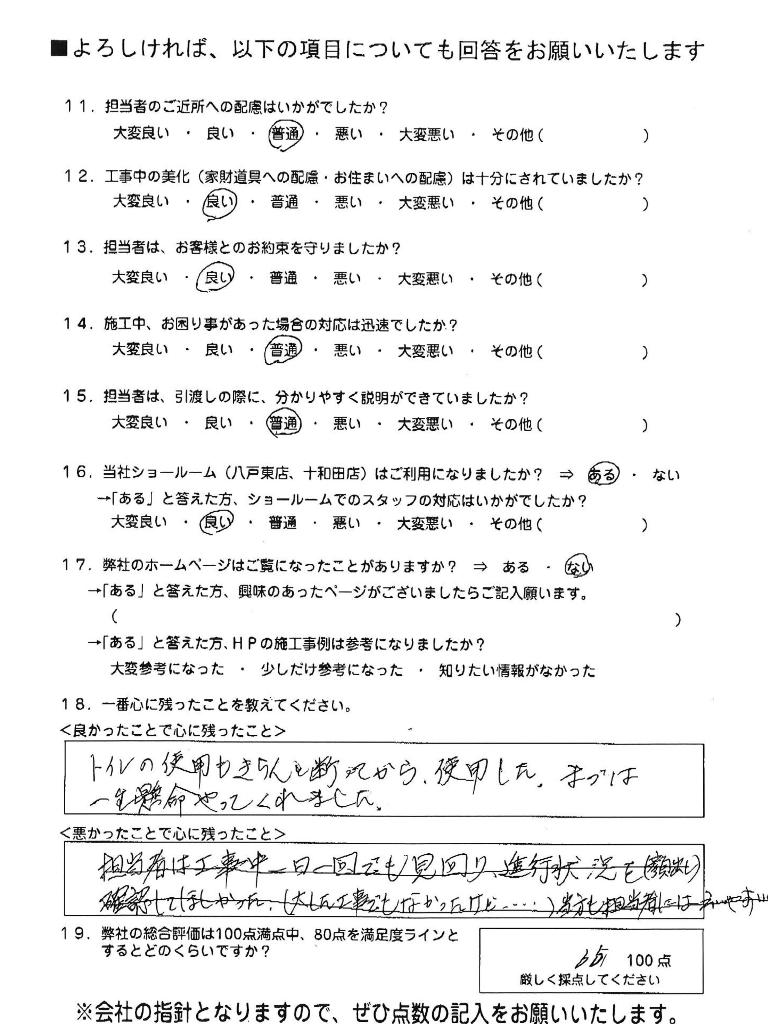 ■よろしければ、以下の項目についても回答をお願いいたします
11．担当者のご近所への配慮はいかがでしたか？
大変良い ・ 良い ・ 普通 ・ 悪い ・ 大変悪い ・ その他（ ）
12．工事中の美化（家財道具への配慮・お住まいへの配慮）は十分にされていましたか？
大変良い ・ 良い ・ 普通 ・ 悪い ・ 大変悪い ・ その他（ ）
13．担当者は、お客様とのお約束を守りましたか？
大変良い ・ 良い ・ 普通 ・ 悪い ・ 大変悪い ・ その他（ ）
14．施工中、お困り事があった場合の対応は迅速でしたか？
大変良い ・ 良い ・ 普通 ・ 悪い ・ 大変悪い ・ その他（ ）
15．担当者は、引渡しの際に、分かりやすく説明ができていましたか？
大変良い ・ 良い ・ 普通 ・ 悪い ・ 大変悪い ・ その他（ ）
16．当社ショールーム（八戸東店、十和田店）はご利用になりましたか？ ⇒ ある ・ ない
→「ある」と答えた方、ショールームでのスタッフの対応はいかがでしたか？
大変良い ・ 良い ・ 普通 ・ 悪い ・ 大変悪い ・ その他（ ）
17．弊社のホームページはご覧になったことがありますか？ ⇒ ある ・ ない
→「ある」と答えた方、興味のあったページがございましたらご記入願います。
（ ）
→「ある」と答えた方、HPの施工事例は参考になりましたか？
大変参考になった ・ 少しだけ参考になった ・ 知りたい情報がなかった
18．一番心に残ったことを教えてください。
<良かったことで心に残ったこと>
トイレの使用もきちんと断ってから、使用した。まずは
一生懸命やってくれました。
<悪かったことで心に残ったこと>
担当者は工事中一日一回でも見回り、進行状況を（顔出し）
確認してほしかった。（大した工事でもなかったけど……）担当者には
19．弊社の総合評価は100点満点中、80点を満足度ラインと
するとどのくらいですか？
100点
厳しく採点してください
※会社の指針となりますので、ぜひ点数の記入をお願いいたします。